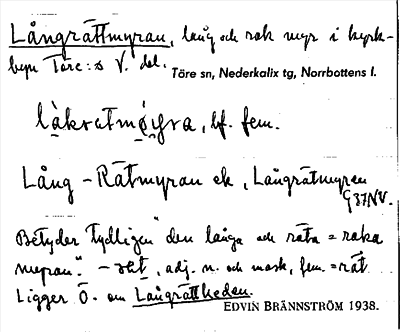 Långrättmyran, lång och rak myr i kyrk-
byn Töre:s V. del.
Töre sn, Nederkalix tg, Norrbottens l.
làkratmǿyra, bf. fem.
Lång-Rätmyran ek, Långrätmyran
G37NV.
Betyder tydligen "den långa och räta = raka
myran". – adj. n. och mask, fem. = rät
Ligger Ö. om Långrättheden.
EDVIN BRÄNNSTRÖM 1938.